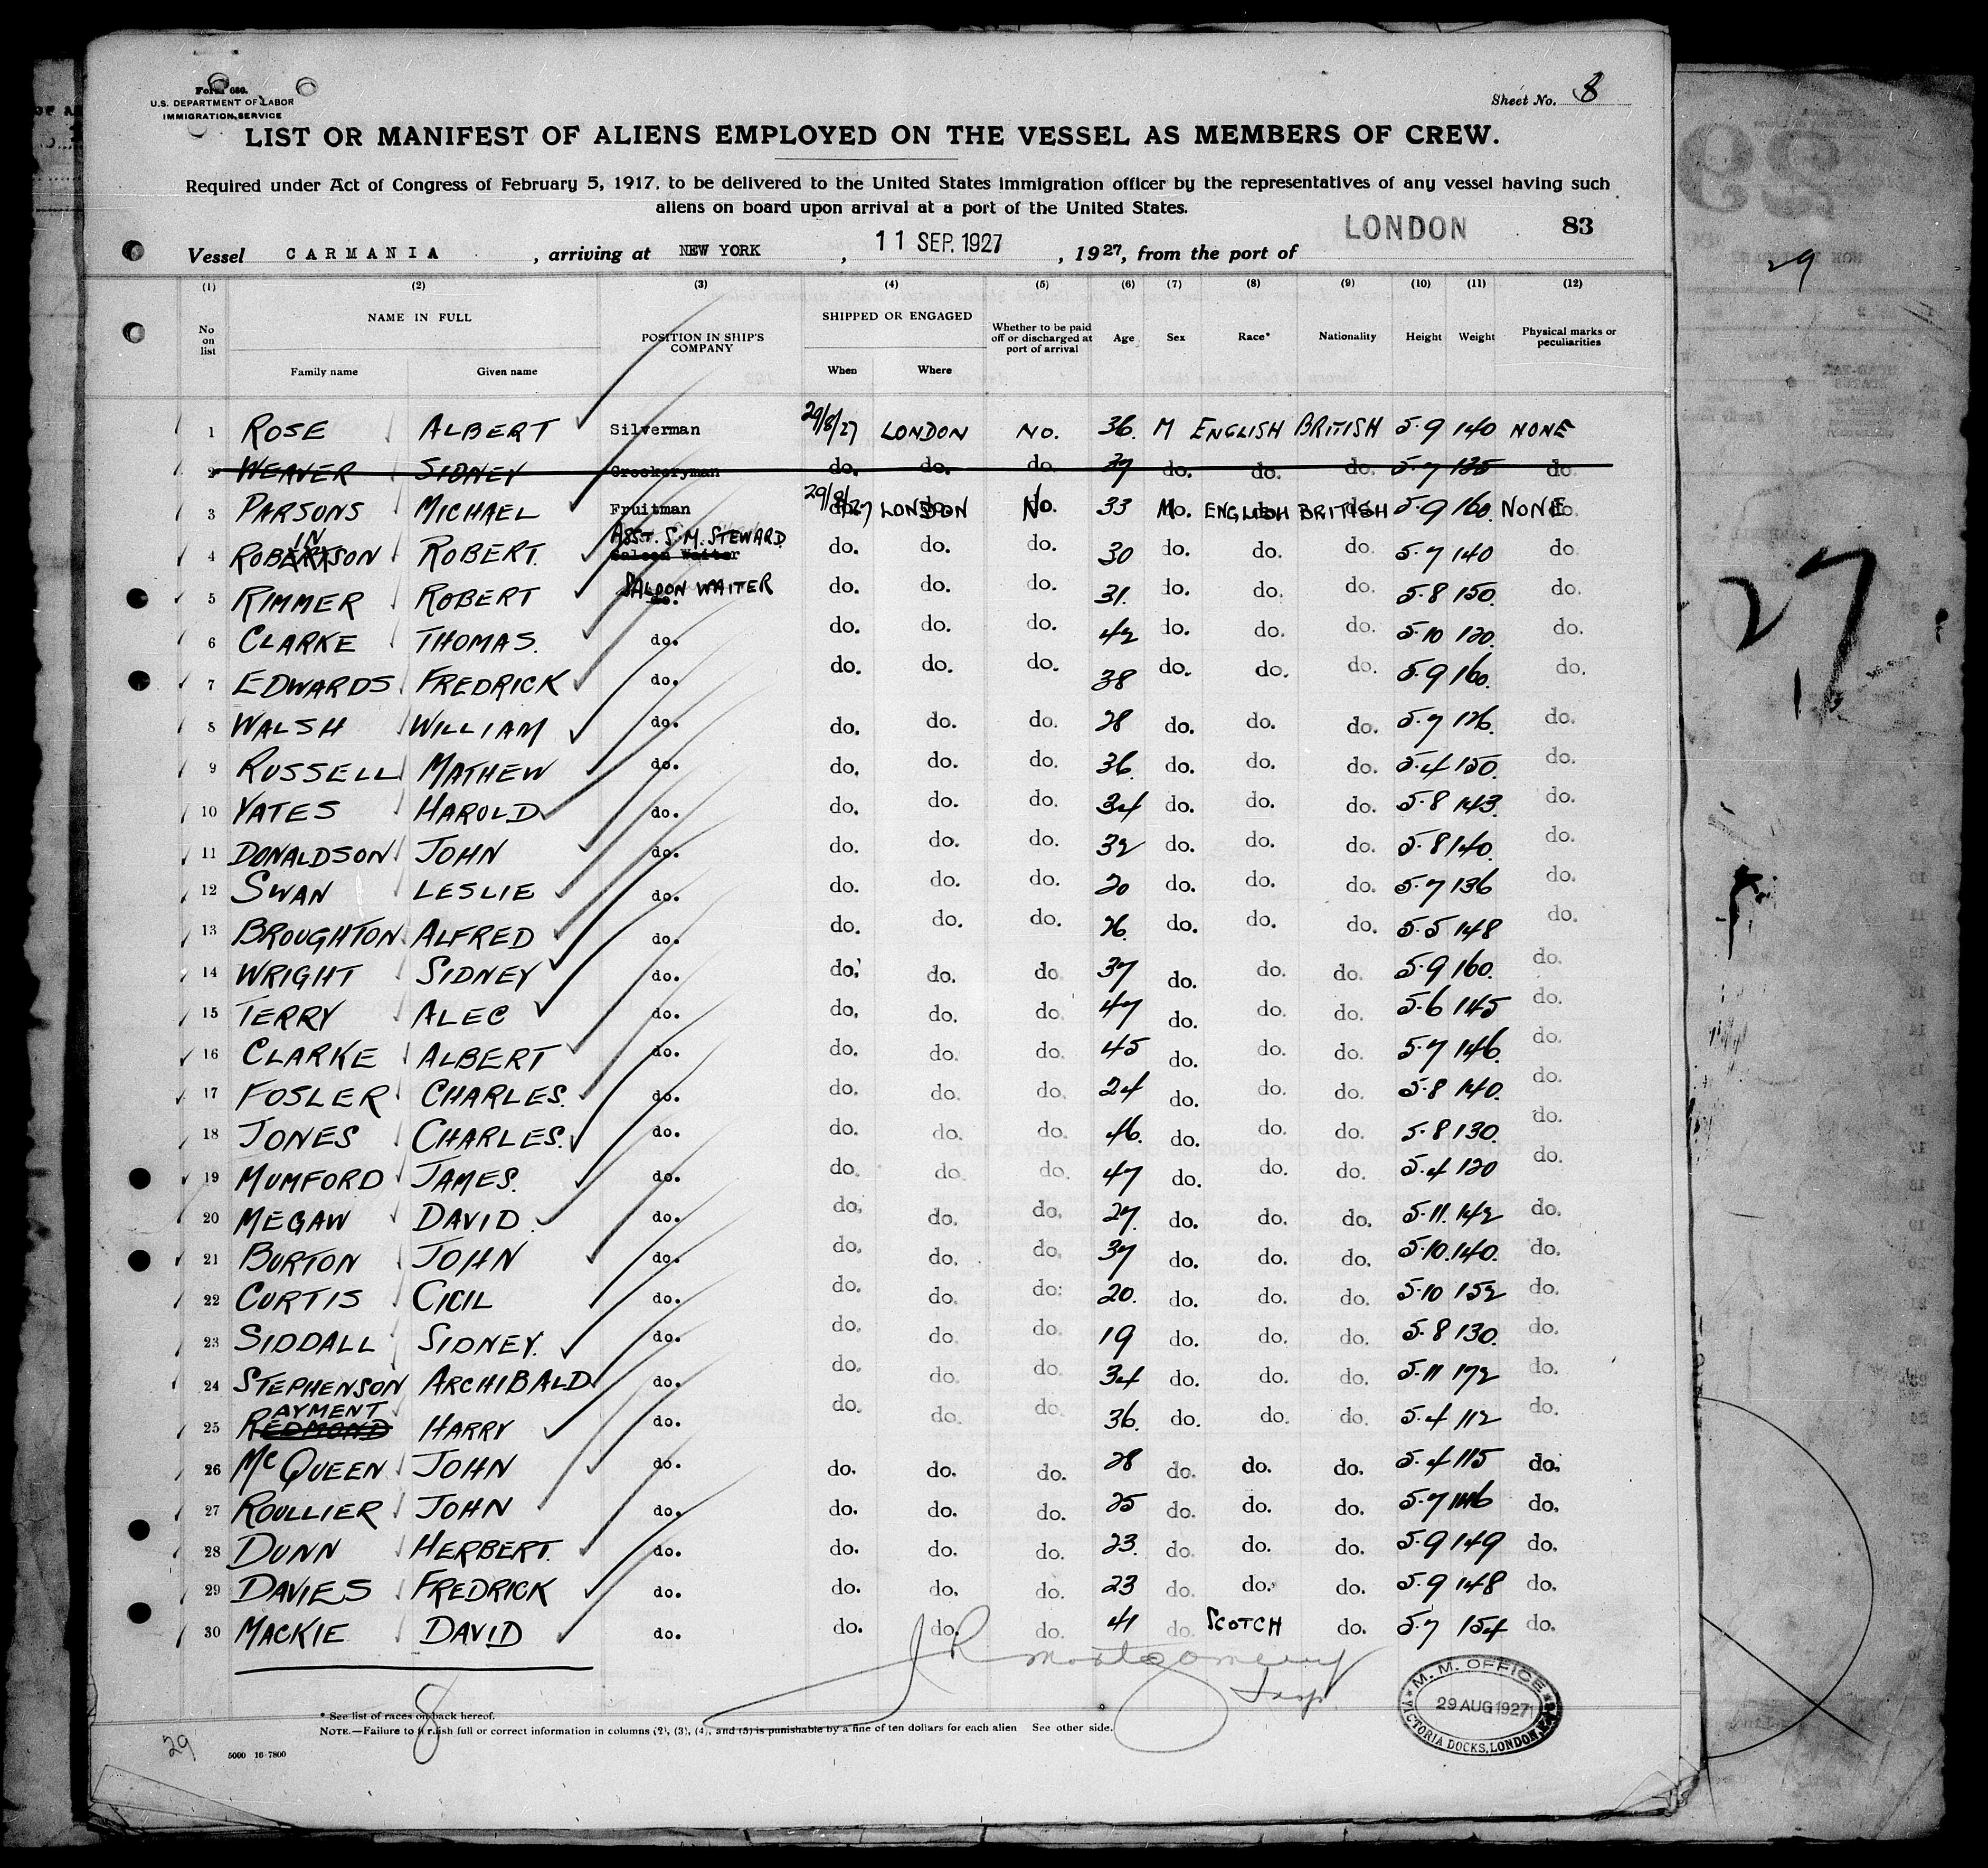 Form 686.
U.S. DEPARTMENT OF LABOR
IMMIGRATION SERVICE
Sheet No. 8
LIST OR MANIFEST OF ALIENS EMPLOYED ON THE VESSEL AS MEMBERS OF CREW.
Required under Act of Congress of February 5, 1917, to be delivered to the United States immigration officer by the representatives of any vessel having such
aliens on board upon arrival at a port of the United States.
LONDON 83
Vessel CARMANIA, arriving at NEW YORK, 11 SEP. 1927, 1927, from the port of
(1) (2) (3) (4) (5) (6) (7) (8) (9) (10) (11) (12)
No on list NAME IN FULL Family name Given name POSITION IN SHIP'S COMPANY SHIPPED OR ENGAGED When Where Whether to be paid off or discharged at port of arrival Age Sex Race* Nationality Height Weight Physical marks or peculiarities
1 ROSE ALBERT Silverman 29/8/27 LONDON NO. 36 M ENGLISH BRITISH 5-9 140 NONE
2 WEAVER SIDNEY Crockeryman do. do. do. 37 do. do. do. 5-7 135 do.
3 PARSONS MICHAEL Fruitman 29/8/27 LONDON No. 33 M. ENGLISH BRITISH 5-9 160 NONE
ASST. S.M. STEWARD
4 ROBINSON ROBERT. Saloon Waiter do. do. do. 30 do. do. do. 5-7 140 do.
5 RIMMER ROBERT SALOON WAITER do. do. do. do. 31. do. do. do. 5-8 150. do.
6 CLARKE THOMAS. do. do. do. do. 42 do. do. do. 5-10 120. do.
7 EDWARDS FREDRICK do. do. do. do. 38 do. do. do. 5-9 160. do.
8 WALSH WILLIAM do. do. do. do. 28 do. do. do. 5-7 126. do.
9 RUSSELL MATHEW do. do. do. do. 36. do. do. do. 5-4 150. do.
10 YATES HAROLD do. do. do. do. 34 do. do. do. 5-8 143. do.
11 DONALDSON JOHN do. do. do. do. 32 do. do. do. 5-8 140. do.
12 SWAN LESLIE do. do. do. do. 20 do. do. do. 5-7 136 do.
13 BROUGHTON ALFRED do. do. do. do. 26. do. do. do. 5-5 148 do.
14 WRIGHT SIDNEY do. do. do. do. 37 do. do. do. 5-9 160. do.
15 TERRY ALEC do. do. do. do. 47 do. do. do. 5-6 145 do.
16 CLARKE ALBERT do. do. do. do. 45 do. do. do. 5-7 146. do.
17 FOSLER CHARLES. do. do. do. do. 24 do. do. do. 5-8 140. do.
18 JONES CHARLES. do. do. do. do. 46. do. do. do. 5-8 130. do.
19 MUMFORD JAMES. do. do. do. do. 47 do. do. do. 5-4 120 do.
20 MEGAW DAVID. do. do. do. do. 27. do. do. do. 5-11. 142 do.
21 BURTON JOHN do. do. do. do. 37 do. do. do. 5-10. 140. do.
22 CURTIS CICIL do. do. do. do. 20. do. do. do. 5-10 152 do.
23 SIDDALL SIDNEY. do. do. do. do. 19 do. do. do. 5-8 130. do.
24 STEPHENSON ARCHIBALD do. do. do. do. 34 do. do. do. 5-11 172 do.
AYMENT
25 REDMOND HARRY do. do. do. do. 36. do. do. do. 5-4 112 do.
26 McQUEEN JOHN do. do. do. do. 28 do. do. do. 5-4 115 do.
27 ROULLIER JOHN do. do. do. do. 25 do. do. do. 5-7 do.
28 DUNN HERBERT. do. do. do. do. 23. do. do. do. 5-9 149 do.
29 DAVIES FREDRICK do. do. do. do. 23 do. do. do. 5-9 148 do.
30 MACKIE DAVID do. do. do. do. 41 do. SCOTCH do. 5-7 154 do.
J R Montgomery
Insp.
8
M. M. OFFICE
29 AUG 1927
VICTORIA DOCKS, LONDON
* See list of races on back hereof.
NOTE.—Failure to furnish full or correct information in columns (2), (3), (4), and (5) is punishable by a fine of ten dollars for each alien See other side.
29
5000 16-7800
29
27